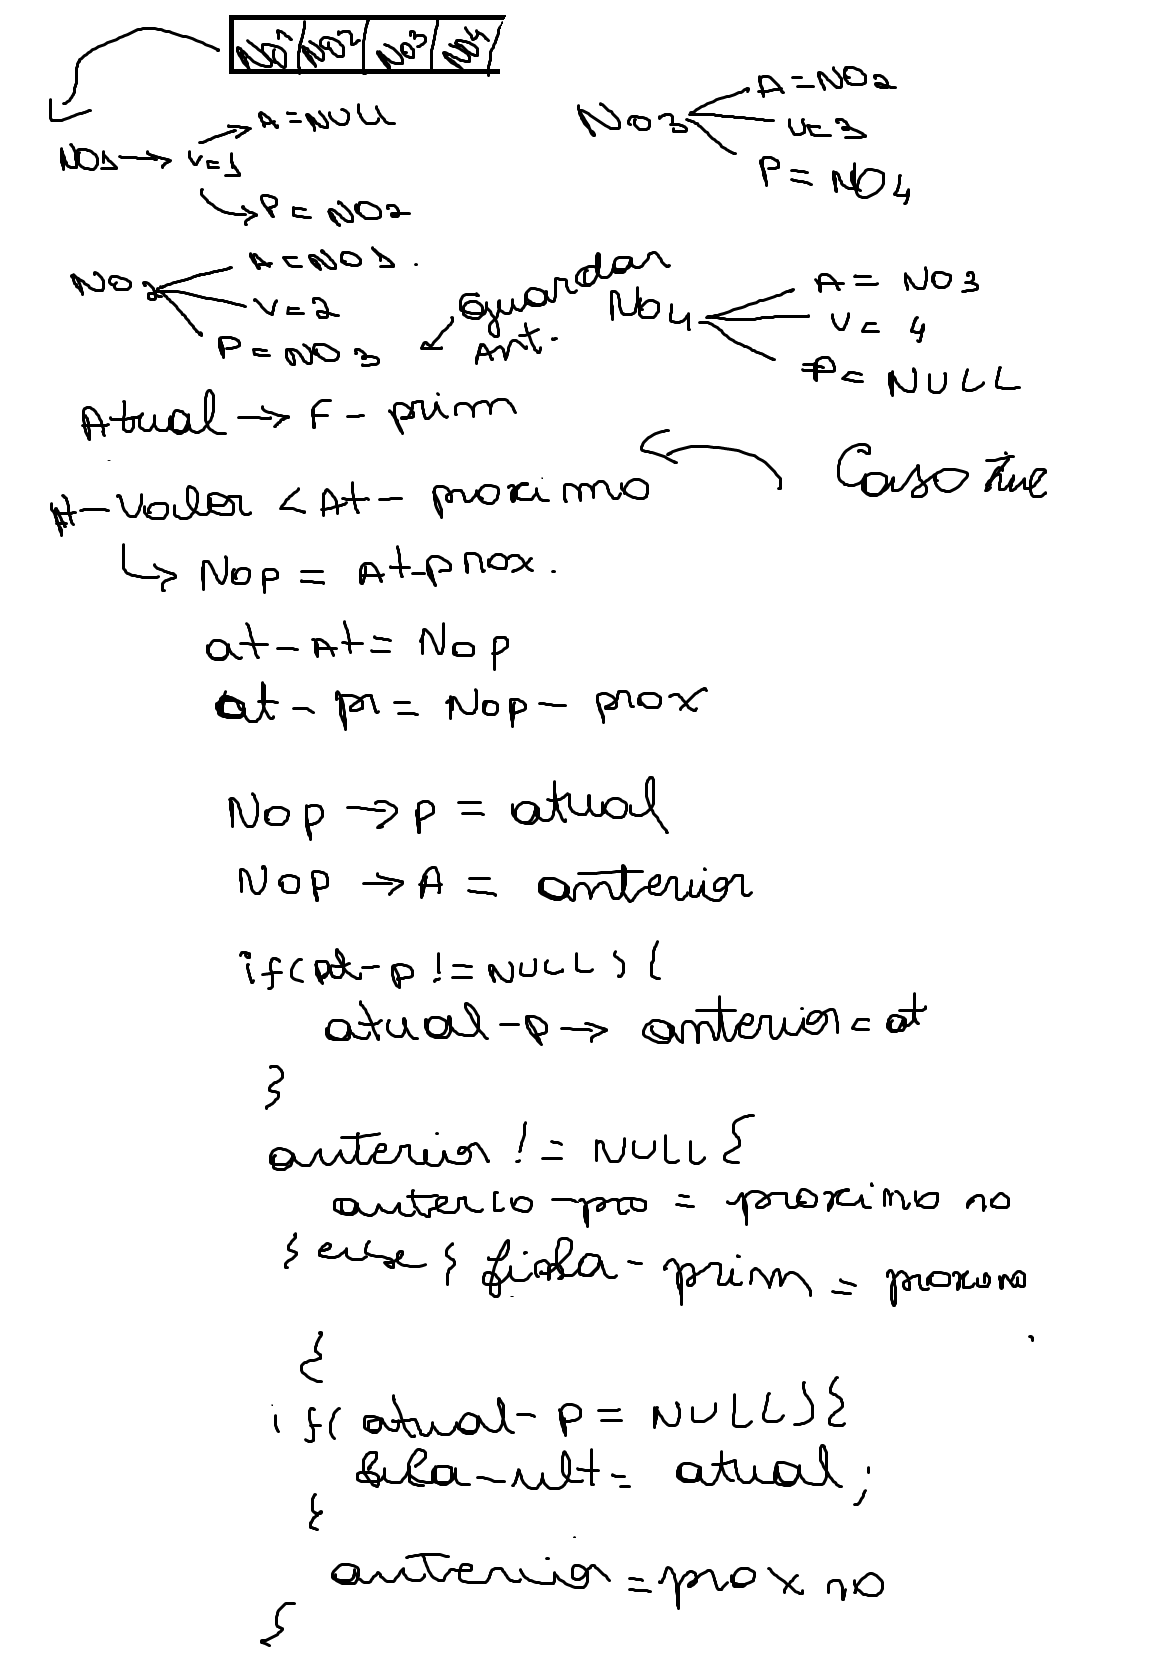 NO1 NO2 NO3 NO4
A=NULL
NO1→ V=1
P = NO2
NO2
A=NO1.
V=2
P=NO3
NO3
A=NO2
V=3
P=NO4
Guardar
Ant.
NO4
A= NO3
V= 4
P= NULL
Atual→ F- prim
Caso true
At-valor <At- proximo
↳ Nop = At-prox.
at-At= Nop
at- pr= Nop- prox
Nop →p = atual
Nop →A = anterior
if(at-p !=NULL) {
atual-p→ anterior=at
}
anterior != NULL {
anterio-pro = proximo no
} else { fila- prim =
{
if( atual- p= NULL){
fila-ult= atual;
{
anterior=prox no
{